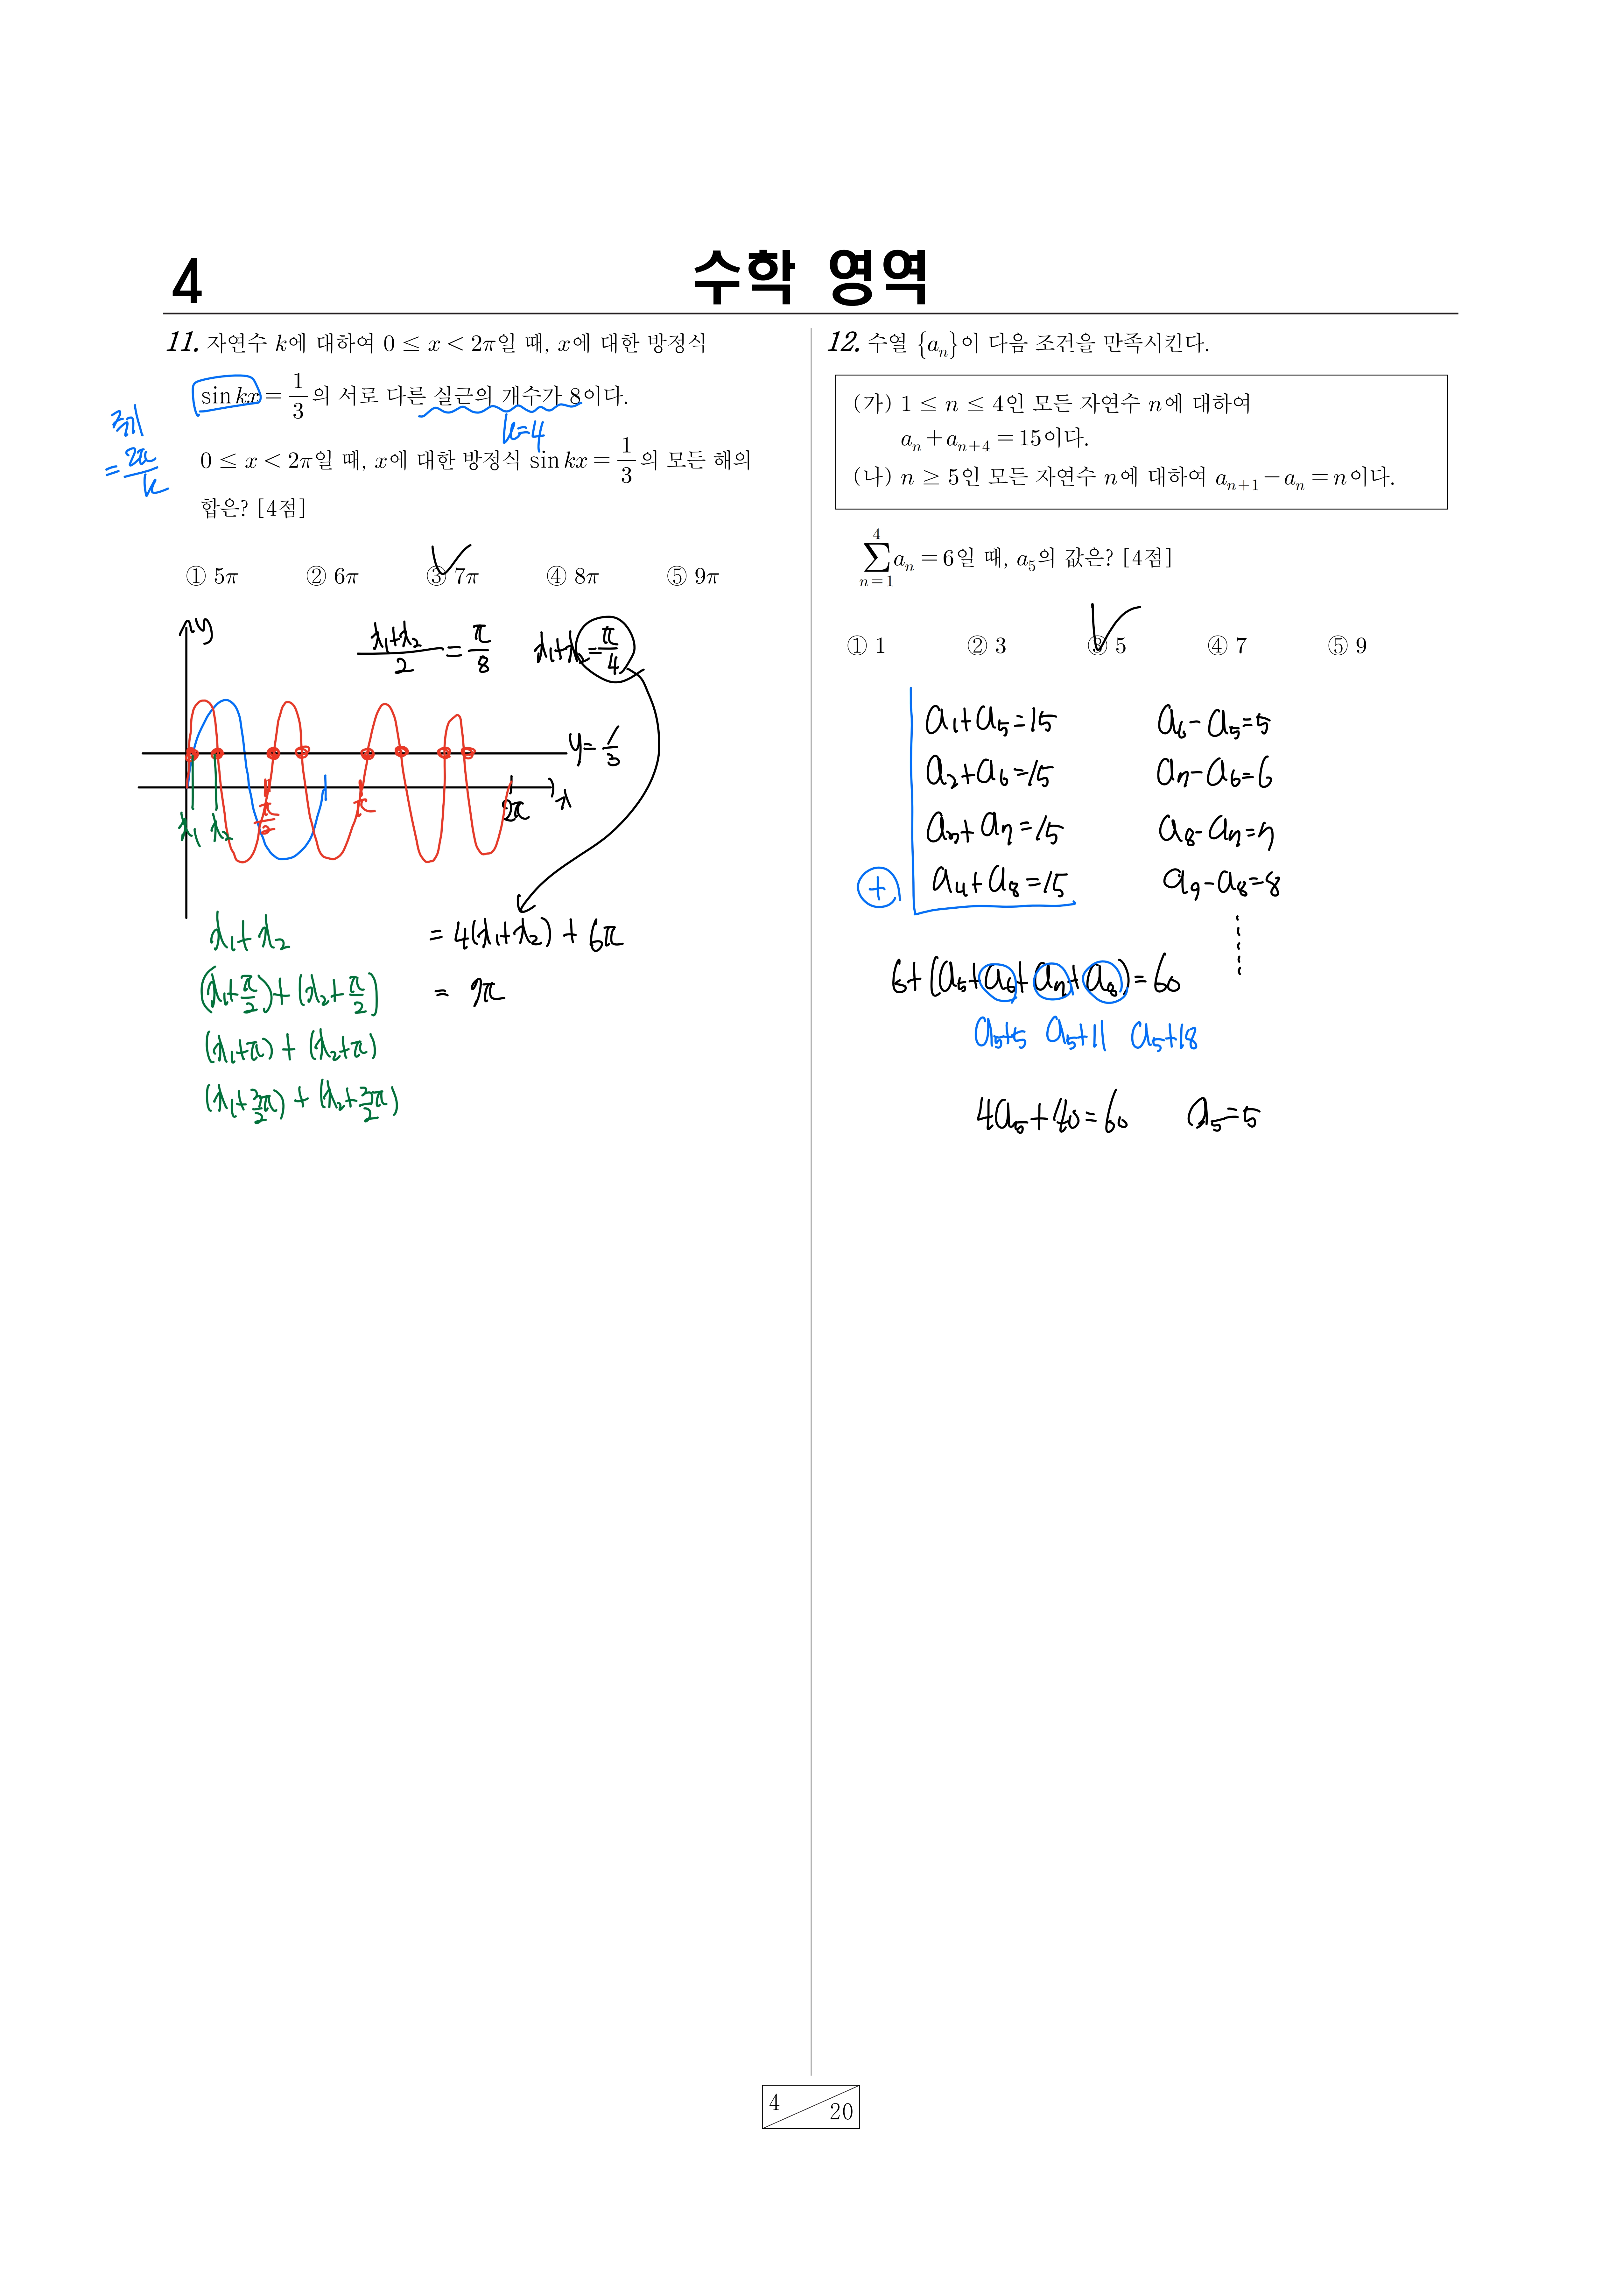 4
수학 영역
11. 자연수 k에 대하여 0 ≤ x < 2π일 때, x에 대한 방정식
sin kx = 1/3 의 서로 다른 실근의 개수가 8이다.
k=4
주기
= 2π/k
0 ≤ x < 2π일 때, x에 대한 방정식 sin kx = 1/3 의 모든 해의
합은? [4점]
① 5π ② 6π ③ 7π ④ 8π ⑤ 9π
y
(x₁+x₂)/2 = π/8 x₁+x₂ = π/4
y = 1/3
x₁ x₂ π/2 π 2π x
x₁+x₂
(x₁+π/2)+(x₂+π/2)
(x₁+π)+(x₂+π)
(x₁+3/2π)+(x₂+3/2π)
= 4(x₁+x₂) + 6π
= 7π
12. 수열 {aₙ}이 다음 조건을 만족시킨다.
(가) 1 ≤ n ≤ 4인 모든 자연수 n에 대하여
aₙ + aₙ₊₄ = 15이다.
(나) n ≥ 5인 모든 자연수 n에 대하여 aₙ₊₁ − aₙ = n이다.
∑ₙ₌₁⁴ aₙ = 6일 때, a₅의 값은? [4점]
① 1 ② 3 ③ 5 ④ 7 ⑤ 9
a₁+a₅=15
a₂+a₆=15
a₃+a₇=15
+ a₄+a₈=15
a₆-a₅=5
a₇-a₆=6
a₈-a₇=7
a₉-a₈=8
6+(a₅+a₆+a₇+a₈)=60
a₅+5 a₅+11 a₅+18
4a₅+40=60 a₅=5
4
20